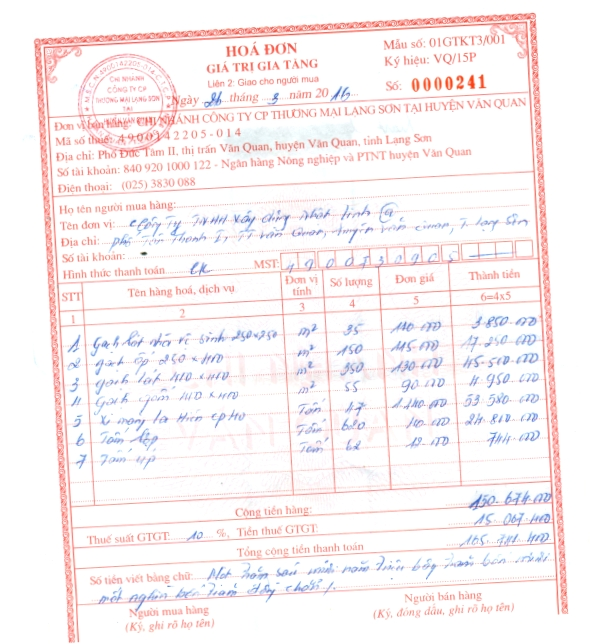 HOÁ ĐƠN
GIÁ TRỊ GIA TĂNG
Liên 2: Giao cho người mua
Ngày 26 tháng 3 năm 2016
Mẫu số: 01GTKT3/001
Ký hiệu: VQ/15P
Số: 0000241
CHI NHÁNH
CÔNG TY CP
THƯƠNG MẠI LẠNG SƠN
TẠI
Đơn vị bán hàng: CHI NHÁNH CÔNG TY CP THƯƠNG MẠI LẠNG SƠN TẠI HUYỆN VĂN QUAN
Mã số thuế: 4900142205-014
Địa chỉ: Phố Đức Tâm II, thị trấn Văn Quan, huyện Văn Quan, tỉnh Lạng Sơn
Số tài khoản: 840 920 1000 122 - Ngân hàng Nông nghiệp và PTNT huyện Văn Quan
Điện thoại: (025) 3830 088
Họ tên người mua hàng:
Tên đơn vị: Công Ty TNHH Xây dựng
Địa chỉ: phố Tân Thanh I, TT Văn Quan, huyện Văn Quan, T. Lạng Sơn
Số tài khoản:
Hình thức thanh toán CK MST:
STT Tên hàng hoá, dịch vụ Đơn vị tính Số lượng Đơn giá Thành tiền
1 2 3 4 5 6=4x5
1 gạch lát vệ sinh 250x250 m² 35 110.000 3.850.000
2 gạch ốp 250 x 400 m² 150 115.000 17.250.000
3 gạch lát 400 x 400 m² 350 130.000 45.500.000
4 gạch 400 x 400 m² 55 90.000 4.950.000
5 Xi măng La Hiên Tấn 47 1.140.000 53.580.000
6 Tấm lợp Tấm 620 40.000 24.800.000
7 Tấm úp Tấm 62 12.000 744.000
Cộng tiền hàng: 150.674.000
Thuế suất GTGT: 10 %, Tiền thuế GTGT: 15.067.400
Tổng cộng tiền thanh toán 165.741.400
Số tiền viết bằng chữ: Một trăm sáu mươi năm triệu bảy trăm bốn mươi
mốt nghìn bốn trăm đồng chẵn /.
Người mua hàng Người bán hàng
(Ký, ghi rõ họ tên) (Ký, đóng dấu, ghi rõ họ tên)